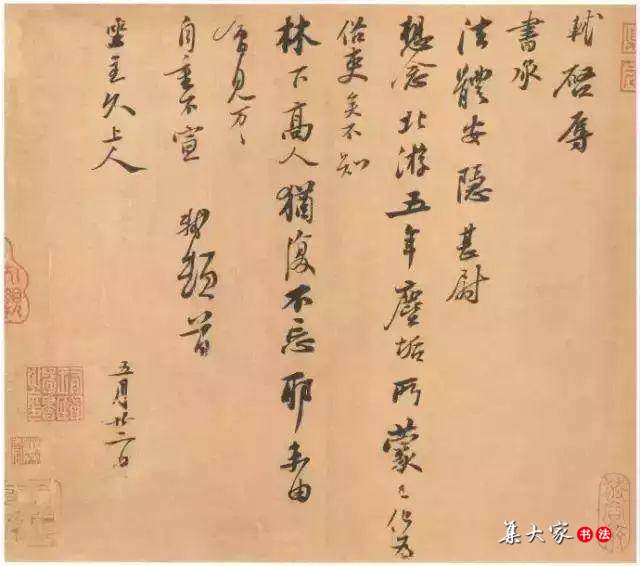 軾啓辱
書承
法體安隱甚尉
想念北游五年塵垢所蒙已化為
俗吏矣不知
林下高人猶復不忘耶未由
會見萬〻
自重不宣 軾頓首
堅主久上人
五月廿二日
集大家书法